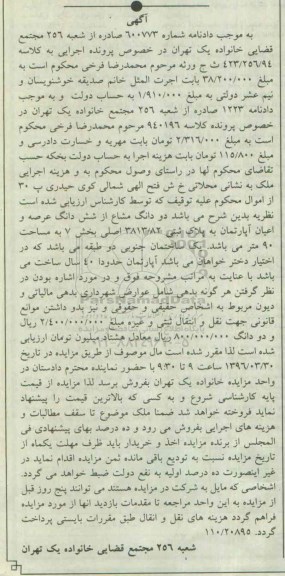 آگهی
به موجب دادنامه شماره ۶۰۰۷۷۳ صادره از شعبه ۲۵۶ مجتمع
قضایی خانواده یک تهران در خصوص پرونده اجرایی به کلاسه
۴۲۳/۲۵۶/۹۴ ث ج ورثه مرحوم محمدرضا فرخی محکوم است به
مبلغ ۳۸/۲۰۰/۰۰۰ بابت اجرت المثل خانم صدیقه خوشنویسان و
نیم عشر دولتی به مبلغ ۱/۹۱۰/۰۰۰ به حساب دولت و به موجب
دادنامه ۱۲۲۳ صادره از شعبه ۲۵۶ مجتمع خانواده یک تهران در
خصوص پرونده کلاسه ۹۴۰۱۹۶ مرحوم محمدرضا فرخی محکوم
است به مبلغ ۲/۳۱۶/۰۰۰ تومان بابت مهریه و خسارت دادرسی و
مبلغ ۱۱۵/۸۰۰ تومان بابت هزینه اجرا به حساب دولت بخکه حسب
تقاضای محکوم لها در راستای وصول محکوم به و هزینه اجرایی
ملک به نشانی محلاتی خ ش فتح الهی شمالی کوی حیدری پ ۳۰
از اموال محکوم علیه توقیف که توسط کارشناس ارزیابی شده است
نظریه بدین شرح می باشد دو دانگ مشاع از شش دانگ عرصه و
اعیان آپارتمان به پلاک ثبتی ۳۸۱۳/۸۲ اصلی بخش ۷ به مساحت
۹۰ متر می باشد. آپارتمان جنوبی دو طبقه می باشد که در
اختیار دختر خواهان می باشد آپارتمان حدودا ۴۰ سال ساخت می
باشد با عنایت به مراتب مشروحه فوق و در مورد اشاره بودن در
نظر گرفتن هر گونه بدهی شامل عوارض شهرداری بدهی مالیاتی و
دیون مربوط به اشخاص حقیقی و حقوقی و نیز بدو داشتن موانع
قانونی جهت نقل و انتقال ثبتی و غیره مبلغ ۲/۴۰۰/۰۰۰/۰۰۰ ریال
و دو دانگ ۸۰۰/۰۰۰/۰۰۰ ریال معادل هشتاد میلیون تومان ارزیابی
شده است لذا مقرر شده است مال موصوف از طریق مزایده در تاریخ
۱۳۹۶/۰۳/۳۰ ساعت ۹ تا ۹:۳۰ با حضور نماینده محترم دادستان در
واحد مزایده خانواده یک تهران بفروش برسد لذا مزایده از قیمت
پایه کارشناسی شروع و به کسی که بالاترین قیمت را پیشنهاد
نماید فروخته خواهد شد ضمنا ملک موضوع تا سقف مطالبات و
هزینه های اجرایی بفروش می رود و ده درصد بهای پیشنهادی فی
المجلس از برنده مزایده اخذ و خریدار باید ظرف مهلت یکماه از
تاریخ مزایده نسبت به تودیع باقی مانده ثمن مزایده اقدام نماید در
غیر اینصورت ده درصد اولیه به نفع دولت ضبط خواهد می گردد
اشخاصی که مایل به شرکت در مزایده هستند می توانند پنج روز قبل
از مزایده به این واحد مراجعه تا مقدمات بازدید آنها از مورد مزایده
فراهم گردد هزینه های نقل و انقال طبق مقررات بایستی پرداخت
گردد. ۱۱۰/۲۰۸۹۵
شعبه ۲۵۶ مجتمع قضایی خانواده یک تهران